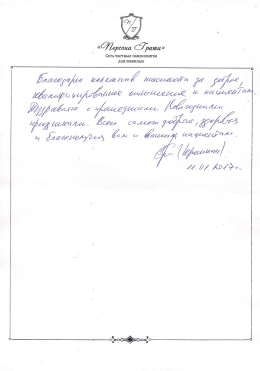 «Персона Грата»
Сеть частных пансионатов
для пожилых
Благодарю коллектив пансионата за доброе,
квалифицированное отношение к пациентам.
Поздравляю с прошедшими Новогодними
праздниками. Всего самого доброго, здоровья
и благополучия вам и вашим пациентам.
11.01.2017г.